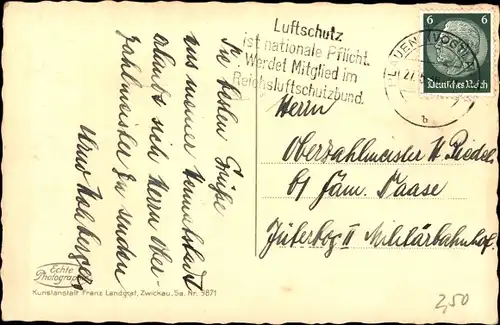 Luftschutz
ist nationale Pflicht.
Werdet Mitglied im
Reichsluftschutzbund.
PLAUEN (VOGTL)
b
6 6
Deutsches Reich
Die besten Grüße
aus meiner Heimatstadt
erlaubt sich Herrn Ober-
zahlmeister zu senden
Herrn
Oberzahlmeister H. Riedel
b/ Fam. Haase
Jüterbog II Militärbahnhof.
Echte
Photographie
Kunstanstalt Franz Landgraf, Zwickau, Sa. Nr. 5871
2,50